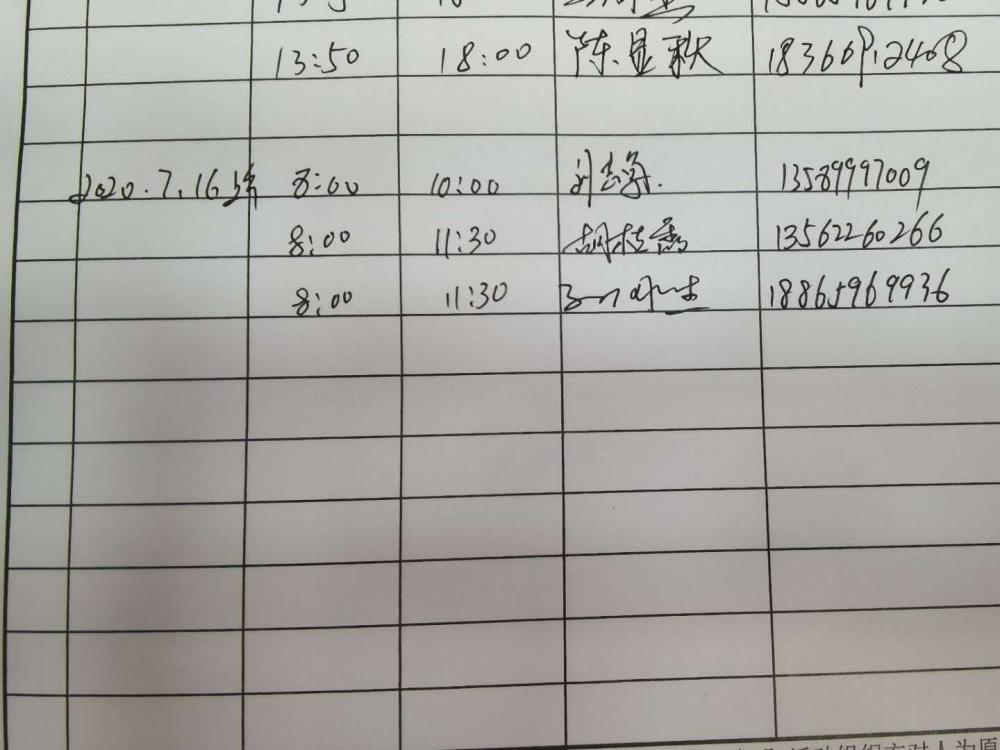 13:50 18:00 陈显秋 18366912408
2020.7.16 8:00 10:00 13589997009
8:00 11:30 胡桂香 13562260266
8:00 11:30 18865969936